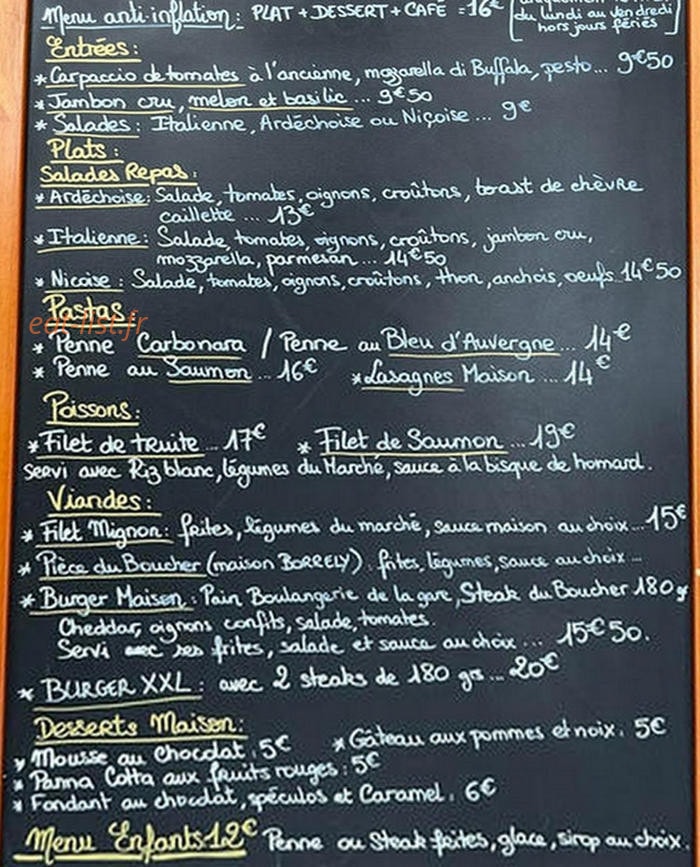 Menu anti-inflation: PLAT + DESSERT + CAFÉ = 16€
du lundi au vendredi
hors jours fériés
Entrées:
* Carpaccio de tomates à l'ancienne, mozzarella di Buffala, pesto... 9€50
* Jambon cru, melon et basilic ... 9€50
* Salades: Italienne, Ardéchoise ou Niçoise ... 9€
Plats:
Salades Repas:
* Ardéchoise: Salade, tomates, oignons, croûtons, toast de chèvre
caillette ... 13€
* Italienne: Salade, tomates, oignons, croûtons, jambon cru,
mozzarella, parmesan ... 14€50
* Nicoise: Salade, tomates, oignons, croûtons, thon, anchois, oeufs..14€50
Pastas
eat-list.fr
* Penne Carbonara / Penne au Bleu d'Auvergne... 14€
* Penne au Saumon ... 16€ * Lasagnes Maison ... 14€
Poissons:
* Filet de truite ... 17€ * Filet de Saumon ... 19€
servi avec Riz blanc, légumes du Marché, sauce à la bisque de homard.
Viandes:
* Filet Mignon: frites, légumes du marché, sauce maison au choix...15€
* Pièce du Boucher (maison BORRELY): frites, légumes, sauce au choix ...
* Burger Maison: Pain Boulangerie de la gare, Steak du Boucher 180g
Cheddar, oignons confits, salade, tomates.
Servi avec ses frites, salade et sauce au choix ... 15€50.
* BURGER XXL: avec 2 steaks de 180 grs ... 20€
Desserts Maison:
* Mousse au Chocolat. 5€ * Gâteau aux pommes et noix. 5€
* Panna Cotta aux fruits rouges: 5€
* Fondant au chocolat, spéculos et Caramel. 6€
Menu Enfants 12€ Penne ou Steak frites, glace, sirop au choix